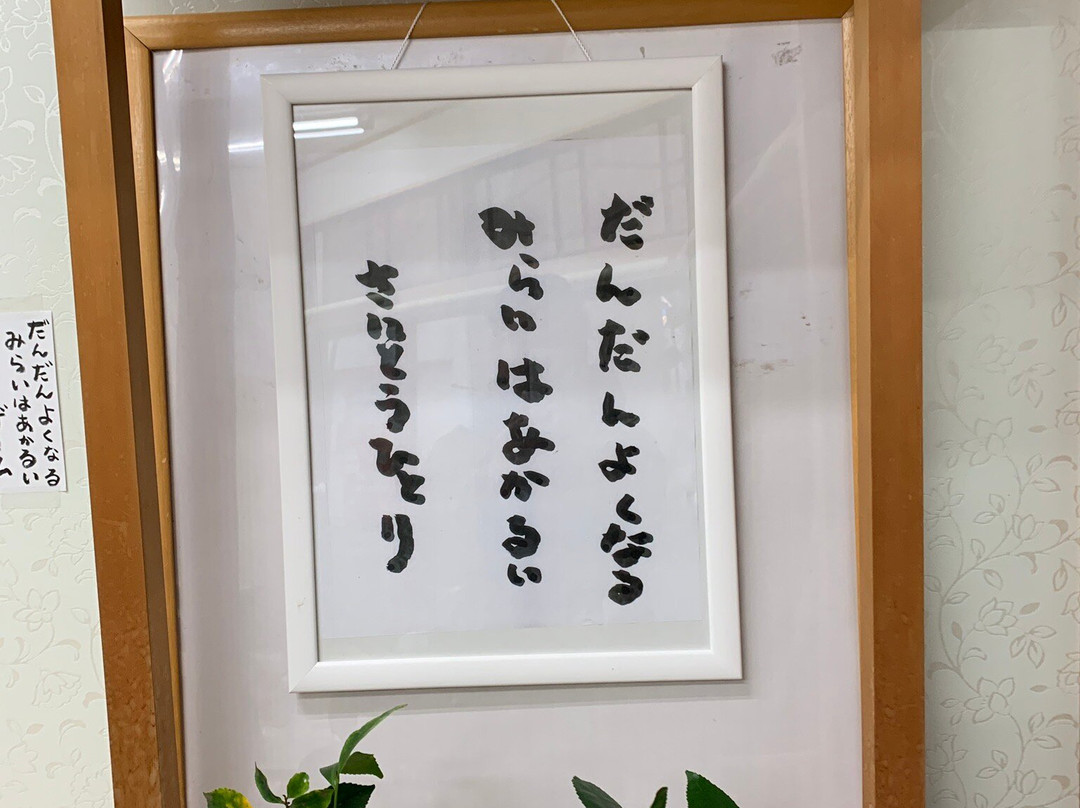 だんだんよくなる
みらいはあかるい
さいとうひとり
だんだんよくなる
みらいはあかるい